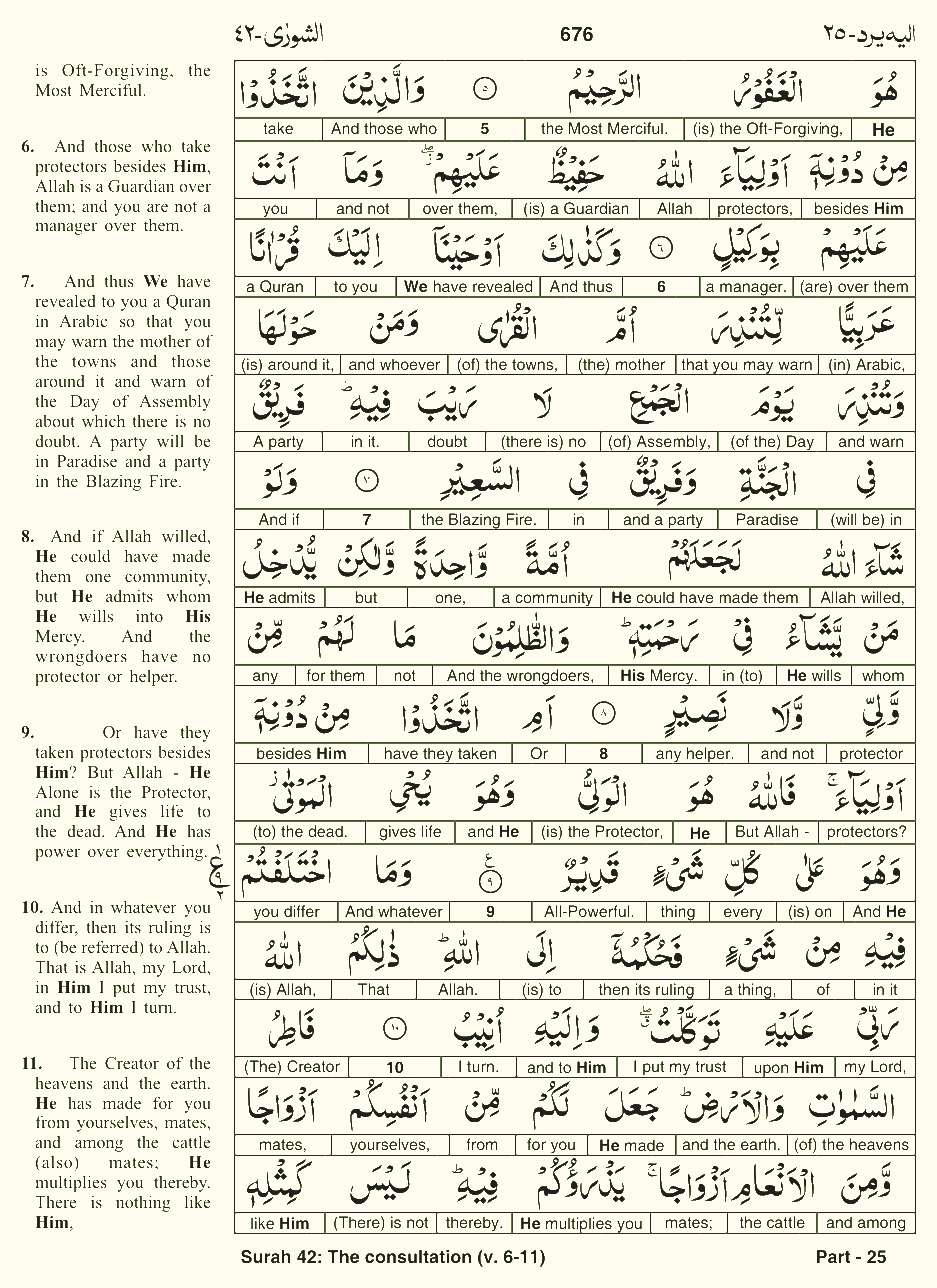 الشورٰى-٤٢ 676 اليه يرد-٢٥
is Oft-Forgiving, the
Most Merciful.
6. And those who take
protectors besides Him,
Allah is a Guardian over
them; and you are not a
manager over them.
7. And thus We have
revealed to you a Quran
in Arabic so that you
may warn the mother of
the towns and those
around it and warn of
the Day of Assembly
about which there is no
doubt. A party will be
in Paradise and a party
in the Blazing Fire.
8. And if Allah willed,
He could have made
them one community,
but He admits whom
He wills into His
Mercy. And the
wrongdoers have no
protector or helper.
9. Or have they
taken protectors besides
Him? But Allah - He
Alone is the Protector,
and He gives life to
the dead. And He has
power over everything.
10. And in whatever you
differ, then its ruling is
to (be referred) to Allah.
That is Allah, my Lord,
in Him I put my trust,
and to Him I turn.
11. The Creator of the
heavens and the earth.
He has made for you
from yourselves, mates,
and among the cattle
(also) mates; He
multiplies you thereby.
There is nothing like
Him,
هُوَ الْغَفُوْرُ الرَّحِيْمُ ٥ وَالَّذِيْنَ اتَّخَذُوْا
take And those who 5 the Most Merciful. (is) the Oft-Forgiving, He
مِنْ دُوْنِهٖٓ اَوْلِيَآءَ اللّٰهُ حَفِيْظٌ عَلَيْهِمْ ۖ وَمَآ اَنْتَ
you and not over them, (is) a Guardian Allah protectors, besides Him
عَلَيْهِمْ بِوَكِيْلٍ ٦ وَكَذٰلِكَ اَوْحَيْنَآ اِلَيْكَ قُرْاٰنًا
a Quran to you We have revealed And thus 6 a manager. (are) over them
عَرَبِيًّا لِّتُنْذِرَ اُمَّ الْقُرٰى وَمَنْ حَوْلَهَا
(is) around it, and whoever (of) the towns, (the) mother that you may warn (in) Arabic,
وَتُنْذِرَ يَوْمَ الْجَمْعِ لَا رَيْبَ فِيْهِ ۭ فَرِيْقٌ
A party in it. doubt (there is) no (of) Assembly, (of the) Day and warn
فِي الْجَنَّةِ وَفَرِيْقٌ فِي السَّعِيْرِ ٧ وَلَوْ
And if 7 the Blazing Fire. in and a party Paradise (will be) in
شَآءَ اللّٰهُ لَجَعَلَهُمْ اُمَّةً وَّاحِدَةً وَّلٰكِنْ يُّدْخِلُ
He admits but one, a community He could have made them Allah willed,
مَنْ يَّشَآءُ فِيْ رَحْمَتِهٖ ۭ وَالظّٰلِمُوْنَ مَا لَهُمْ مِّنْ
any for them not And the wrongdoers, His Mercy. in (to) He wills whom
وَّلِيٍّ وَّلَا نَصِيْرٍ ٨ اَمِ اتَّخَذُوْا مِنْ دُوْنِهٖٓ
besides Him have they taken Or 8 any helper. and not protector
اَوْلِيَآءَ ۚ فَاللّٰهُ هُوَ الْوَلِيُّ وَهُوَ يُحْيِ الْمَوْتٰى ۡ
(to) the dead. gives life and He (is) the Protector, He But Allah - protectors?
وَهُوَ عَلٰى كُلِّ شَيْءٍ قَدِيْرٌ ٩ وَمَا اخْتَلَفْتُمْ
you differ And whatever 9 All-Powerful. thing every (is) on And He
فِيْهِ مِنْ شَيْءٍ فَحُكْمُهٗٓ اِلَى اللّٰهِ ۭ ذٰلِكُمُ اللّٰهُ
(is) Allah, That Allah. (is) to then its ruling a thing, of in it
رَبِّيْ عَلَيْهِ تَوَكَّلْتُ ۖ وَاِلَيْهِ اُنِيْبُ ١٠ فَاطِرُ
(The) Creator 10 I turn. and to Him I put my trust upon Him my Lord,
السَّمٰوٰتِ وَالْاَرْضِ ۭ جَعَلَ لَكُمْ مِّنْ اَنْفُسِكُمْ اَزْوَاجًا
mates, yourselves, from for you He made and the earth. (of) the heavens
وَّمِنَ الْاَنْعَامِ اَزْوَاجًا ۚ يَذْرَؤُكُمْ فِيْهِ ۭ لَيْسَ كَمِثْلِهٖ
like Him (There) is not thereby. He multiplies you mates; the cattle and among
Surah 42: The consultation (v. 6-11) Part - 25